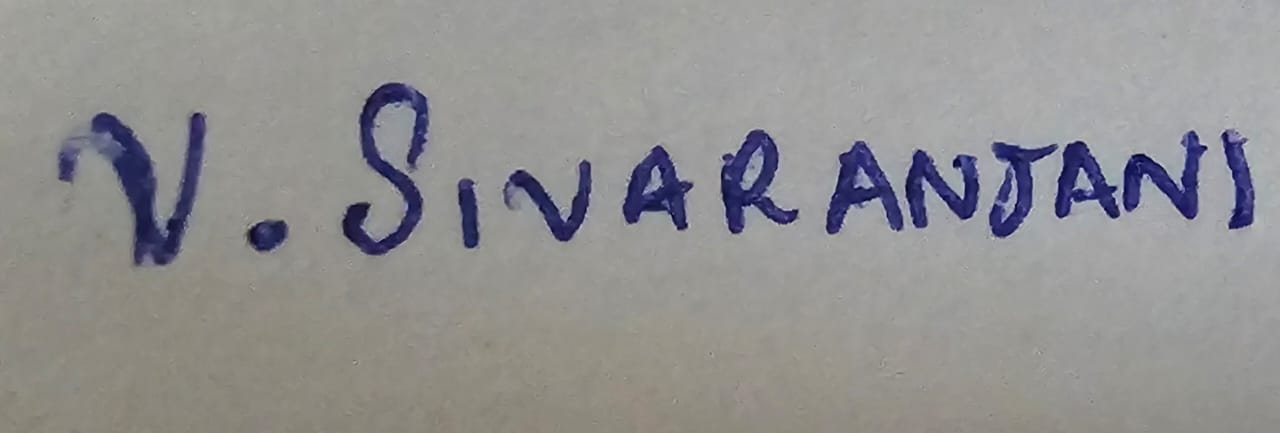 V. SIVARANJANI